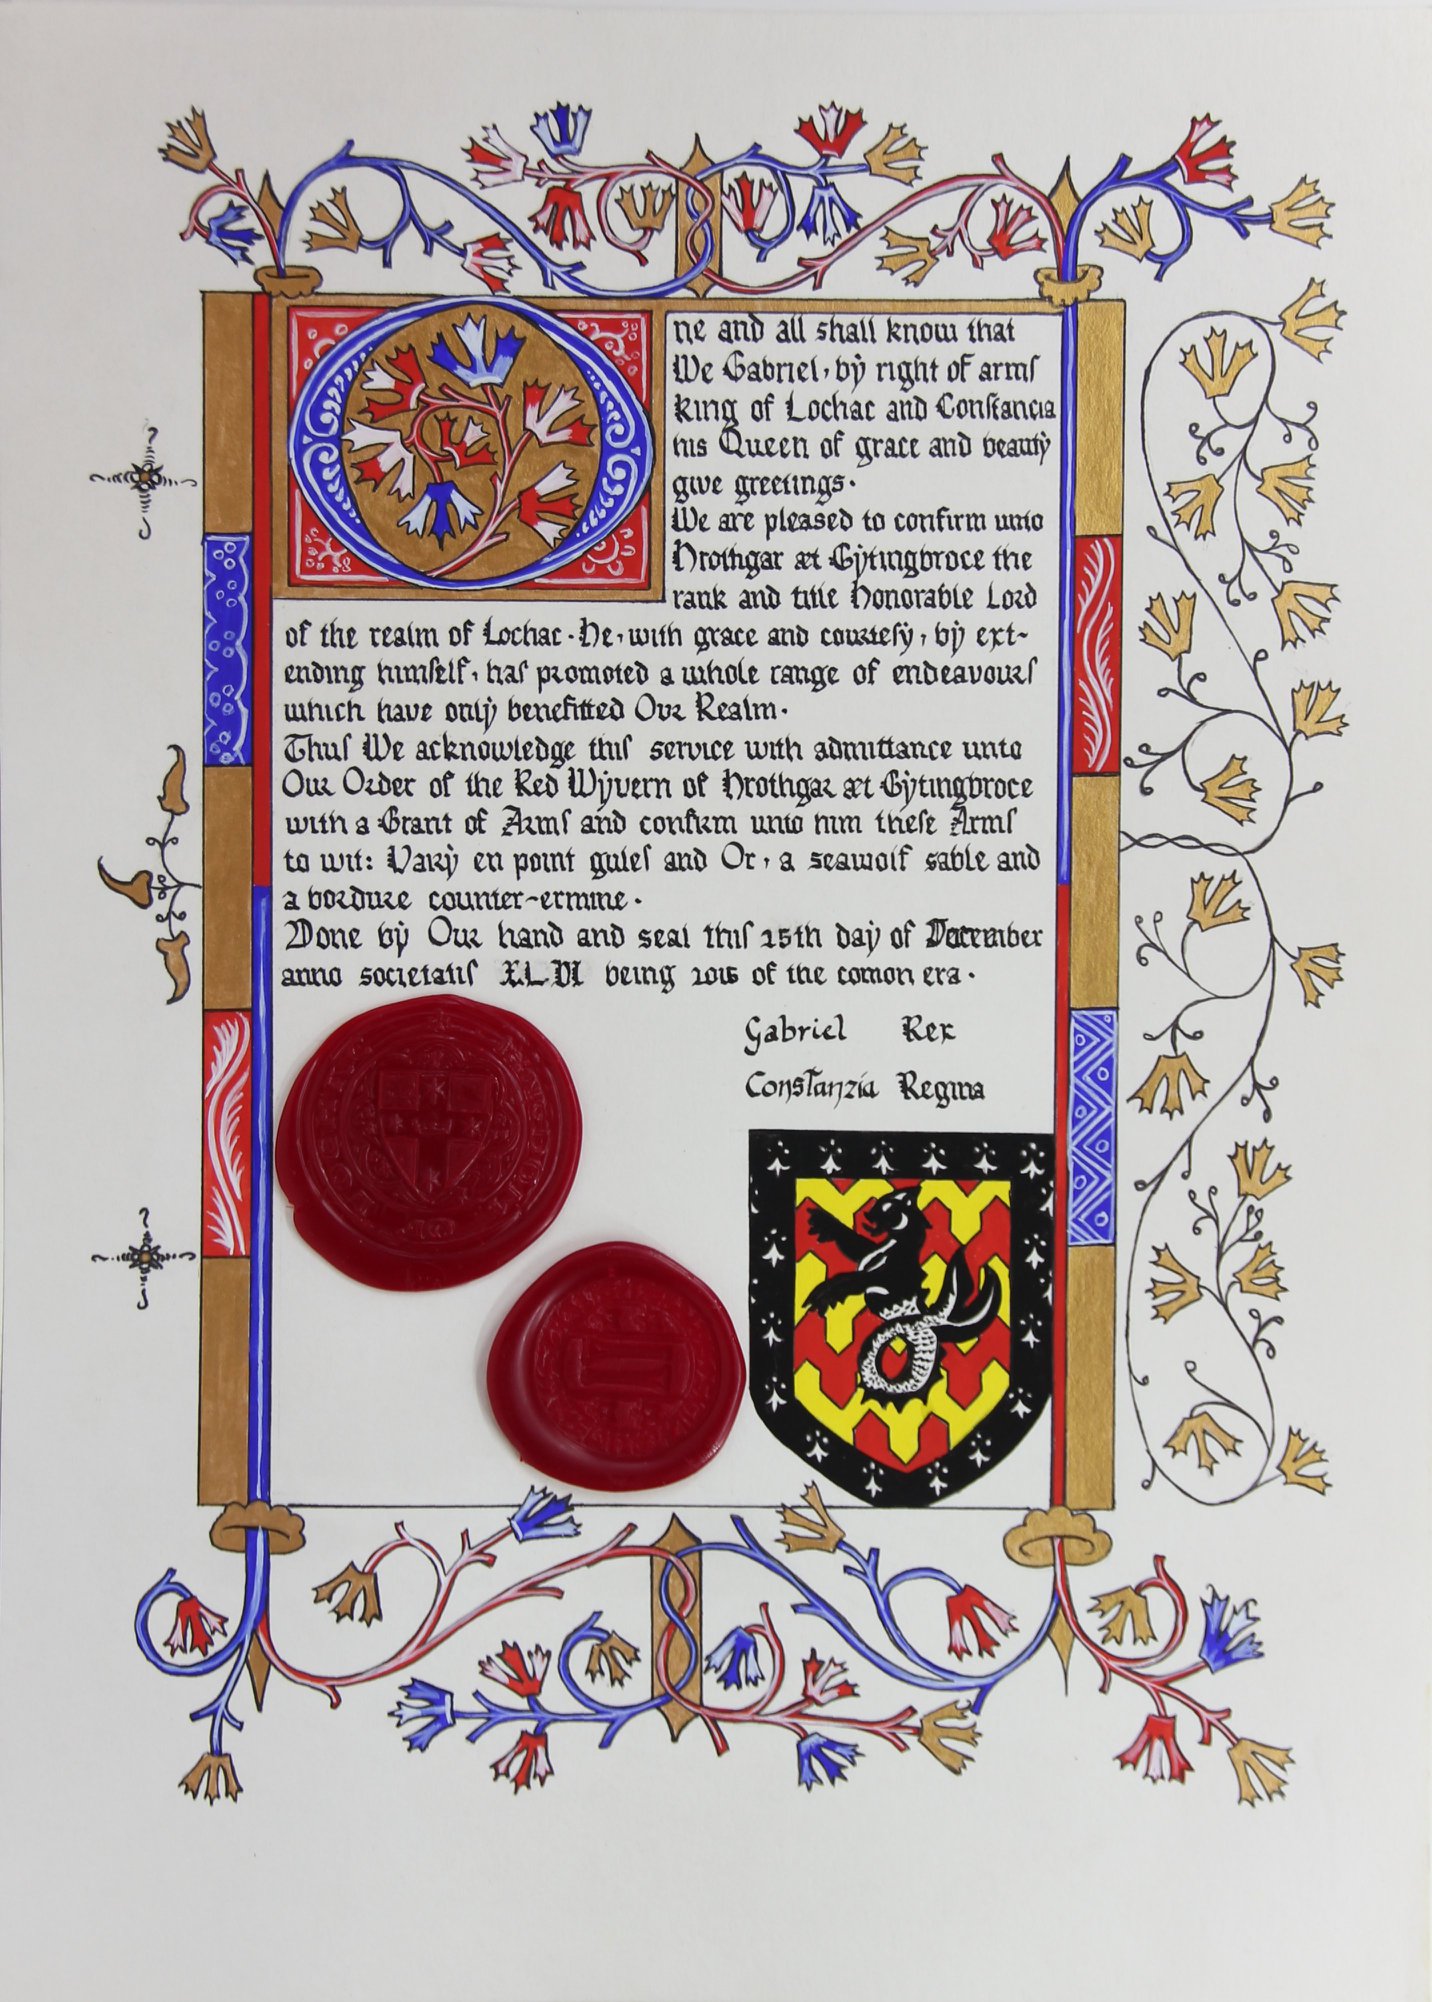 One and all shall know that
We Gabriel, by right of arms
King of Lochac and Constancia
his Queen of grace and beauty
give greetings.
We are pleased to confirm unto
Hrothgar æt Gytingbroce the
rank and title Honorable Lord
of the realm of Lochac. He, with grace and courtesy, by ext-
ending himself, has promoted a whole range of endeavours
which have only benefitted Our Realm.
Thus We acknowledge this service with admittance unto
Our Order of the Red Wyvern of Hrothgar æt Gytingbroce
with a Grant of Arms and confirm unto him these Arms
to wit: Vary en point gules and Or, a seawolf sable and
a bordure counter-ermine.
Done by Our hand and seal this 15th day of December
anno societatis being of the comon era.
Gabriel Rex
Constanzia Regina